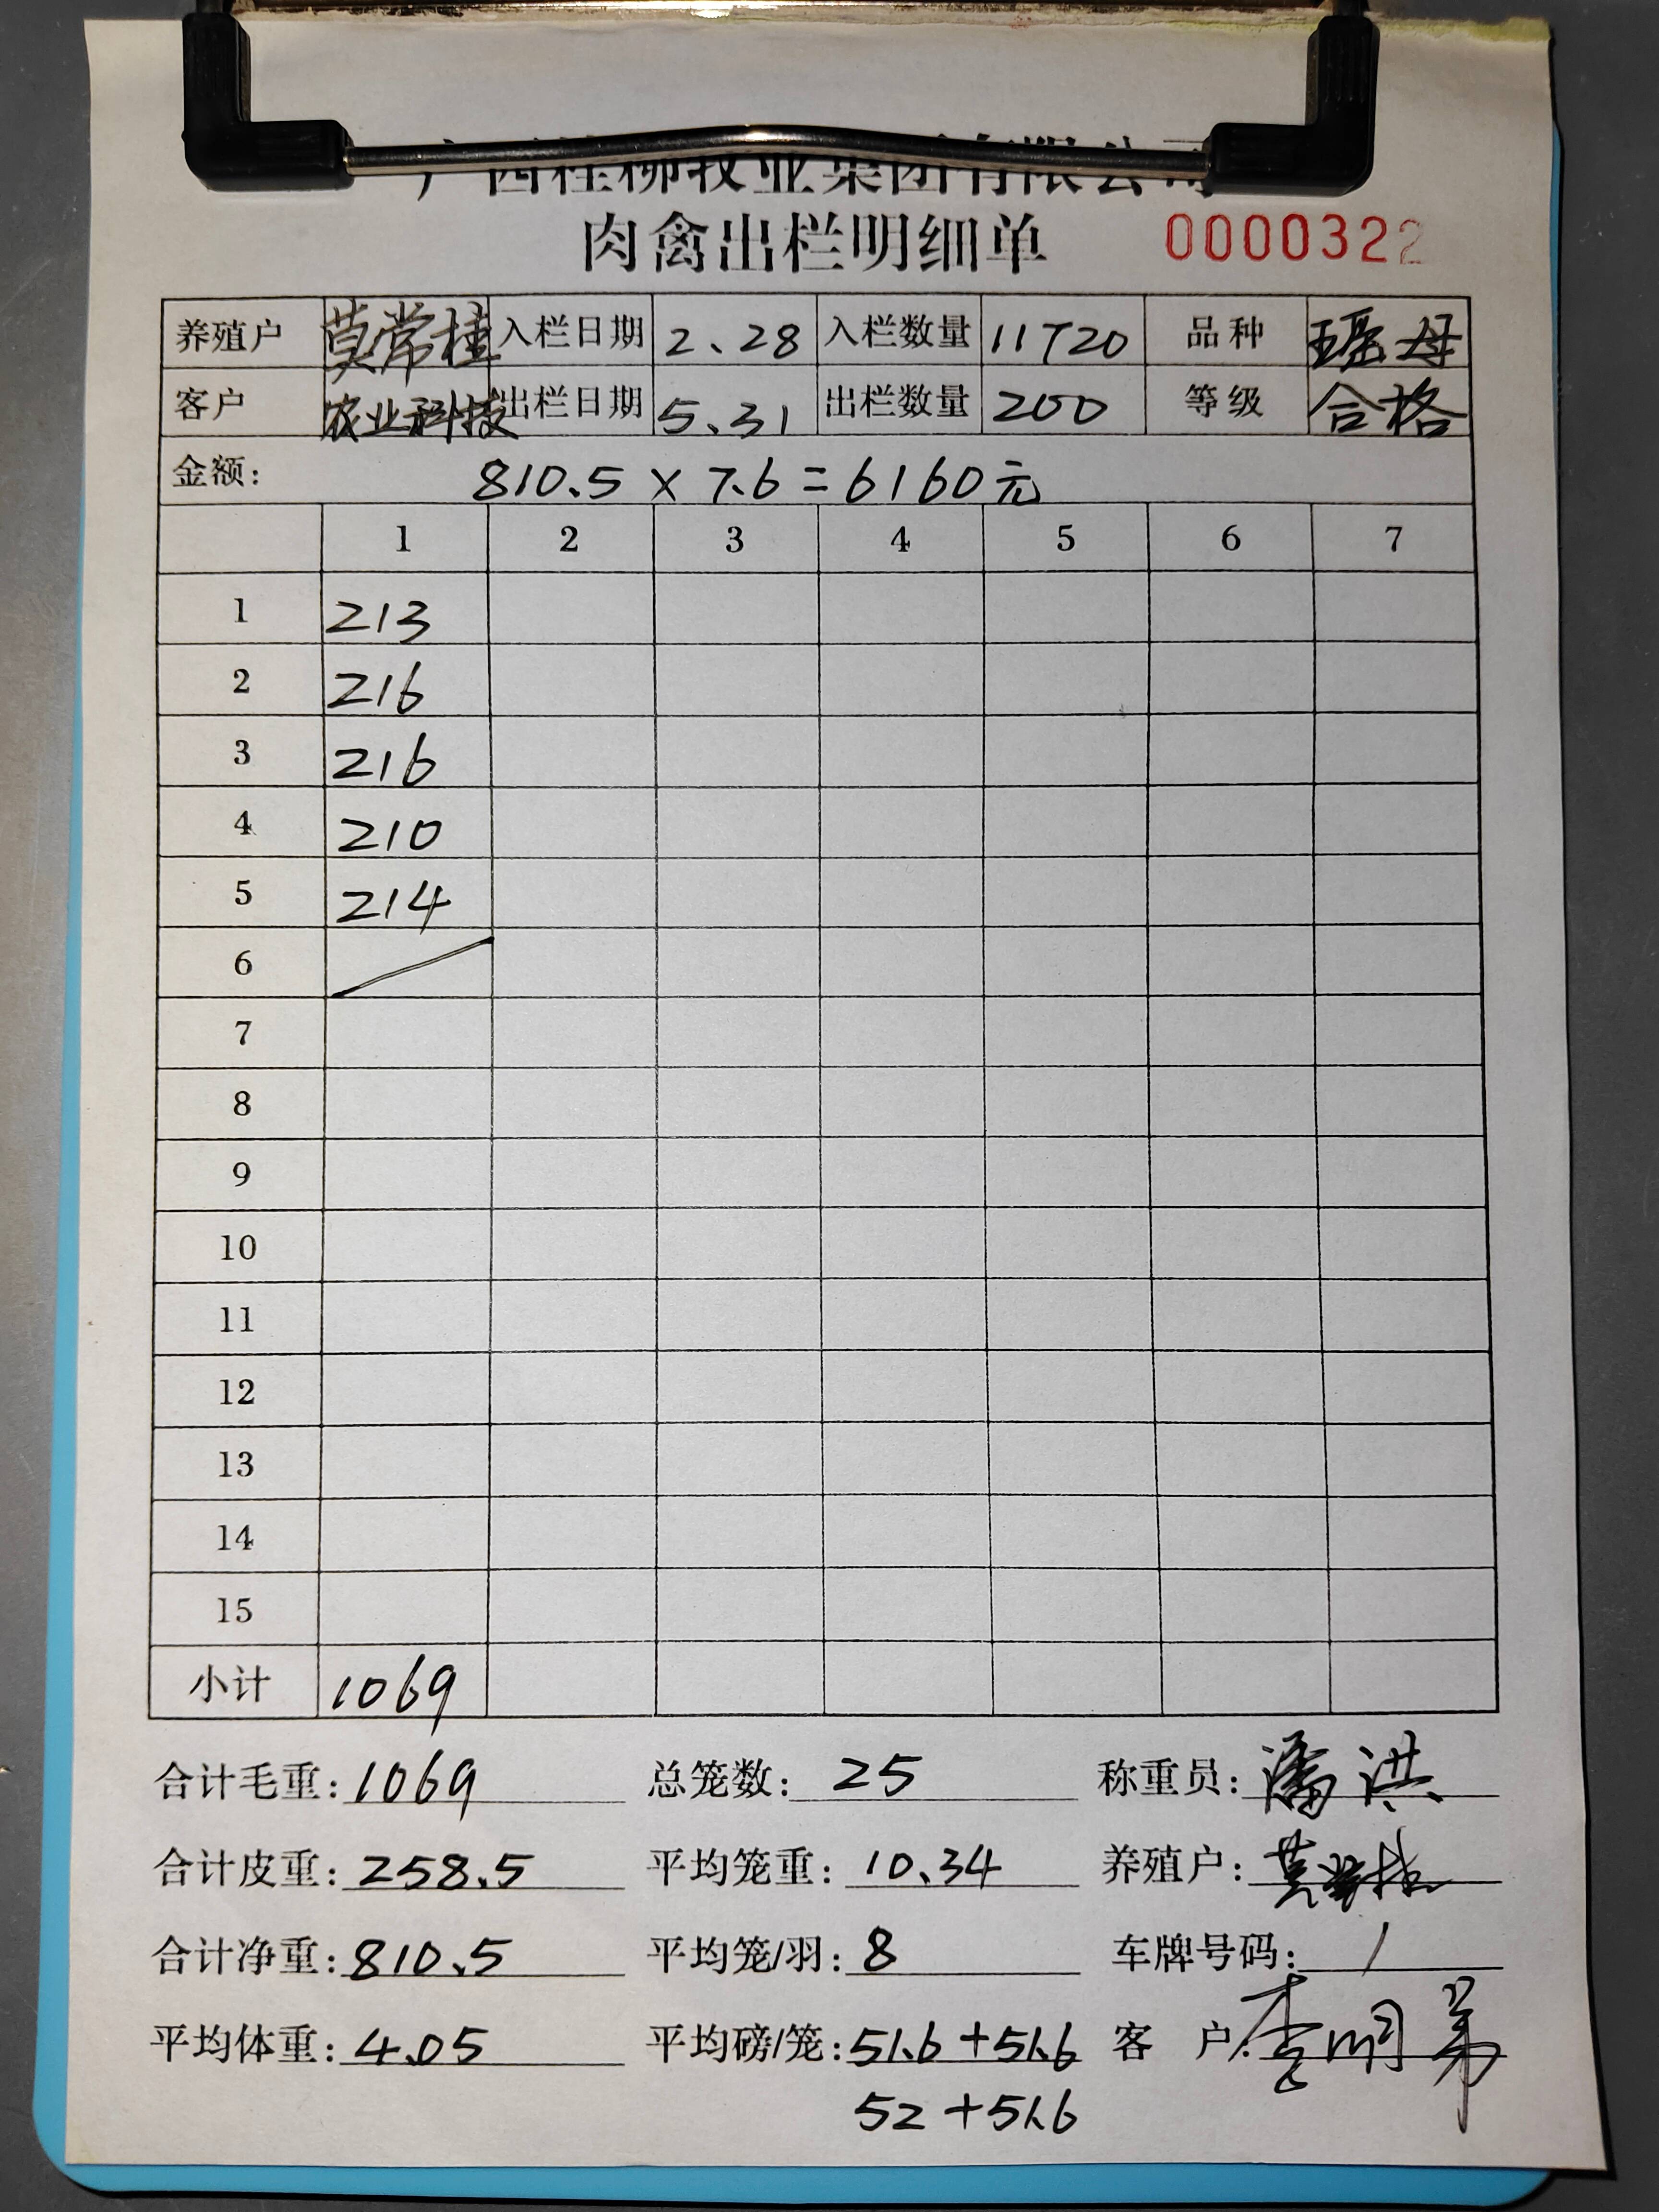 广西桂柳牧业集团有限公司
肉禽出栏明细单 0000322
养殖户 莫常桂 入栏日期 2.28 入栏数量 11720 品种 瑶母
客户 农业科技 出栏日期 5.31 出栏数量 200 等级 合格
金额: 810.5 × 7.6 = 6160元
1 2 3 4 5 6 7
1 213
2 216
3 216
4 210
5 214
6
7
8
9
10
11
12
13
14
15
小计 1069
合计毛重: 1069 总笼数: 25 称重员: 潘洪
合计皮重: 258.5 平均笼重: 10.34 养殖户: 莫常桂
合计净重: 810.5 平均笼/羽: 8 车牌号码: /
平均体重: 4.05 平均磅/笼: 51.6+51.6 客 户: 李明
52+51.6